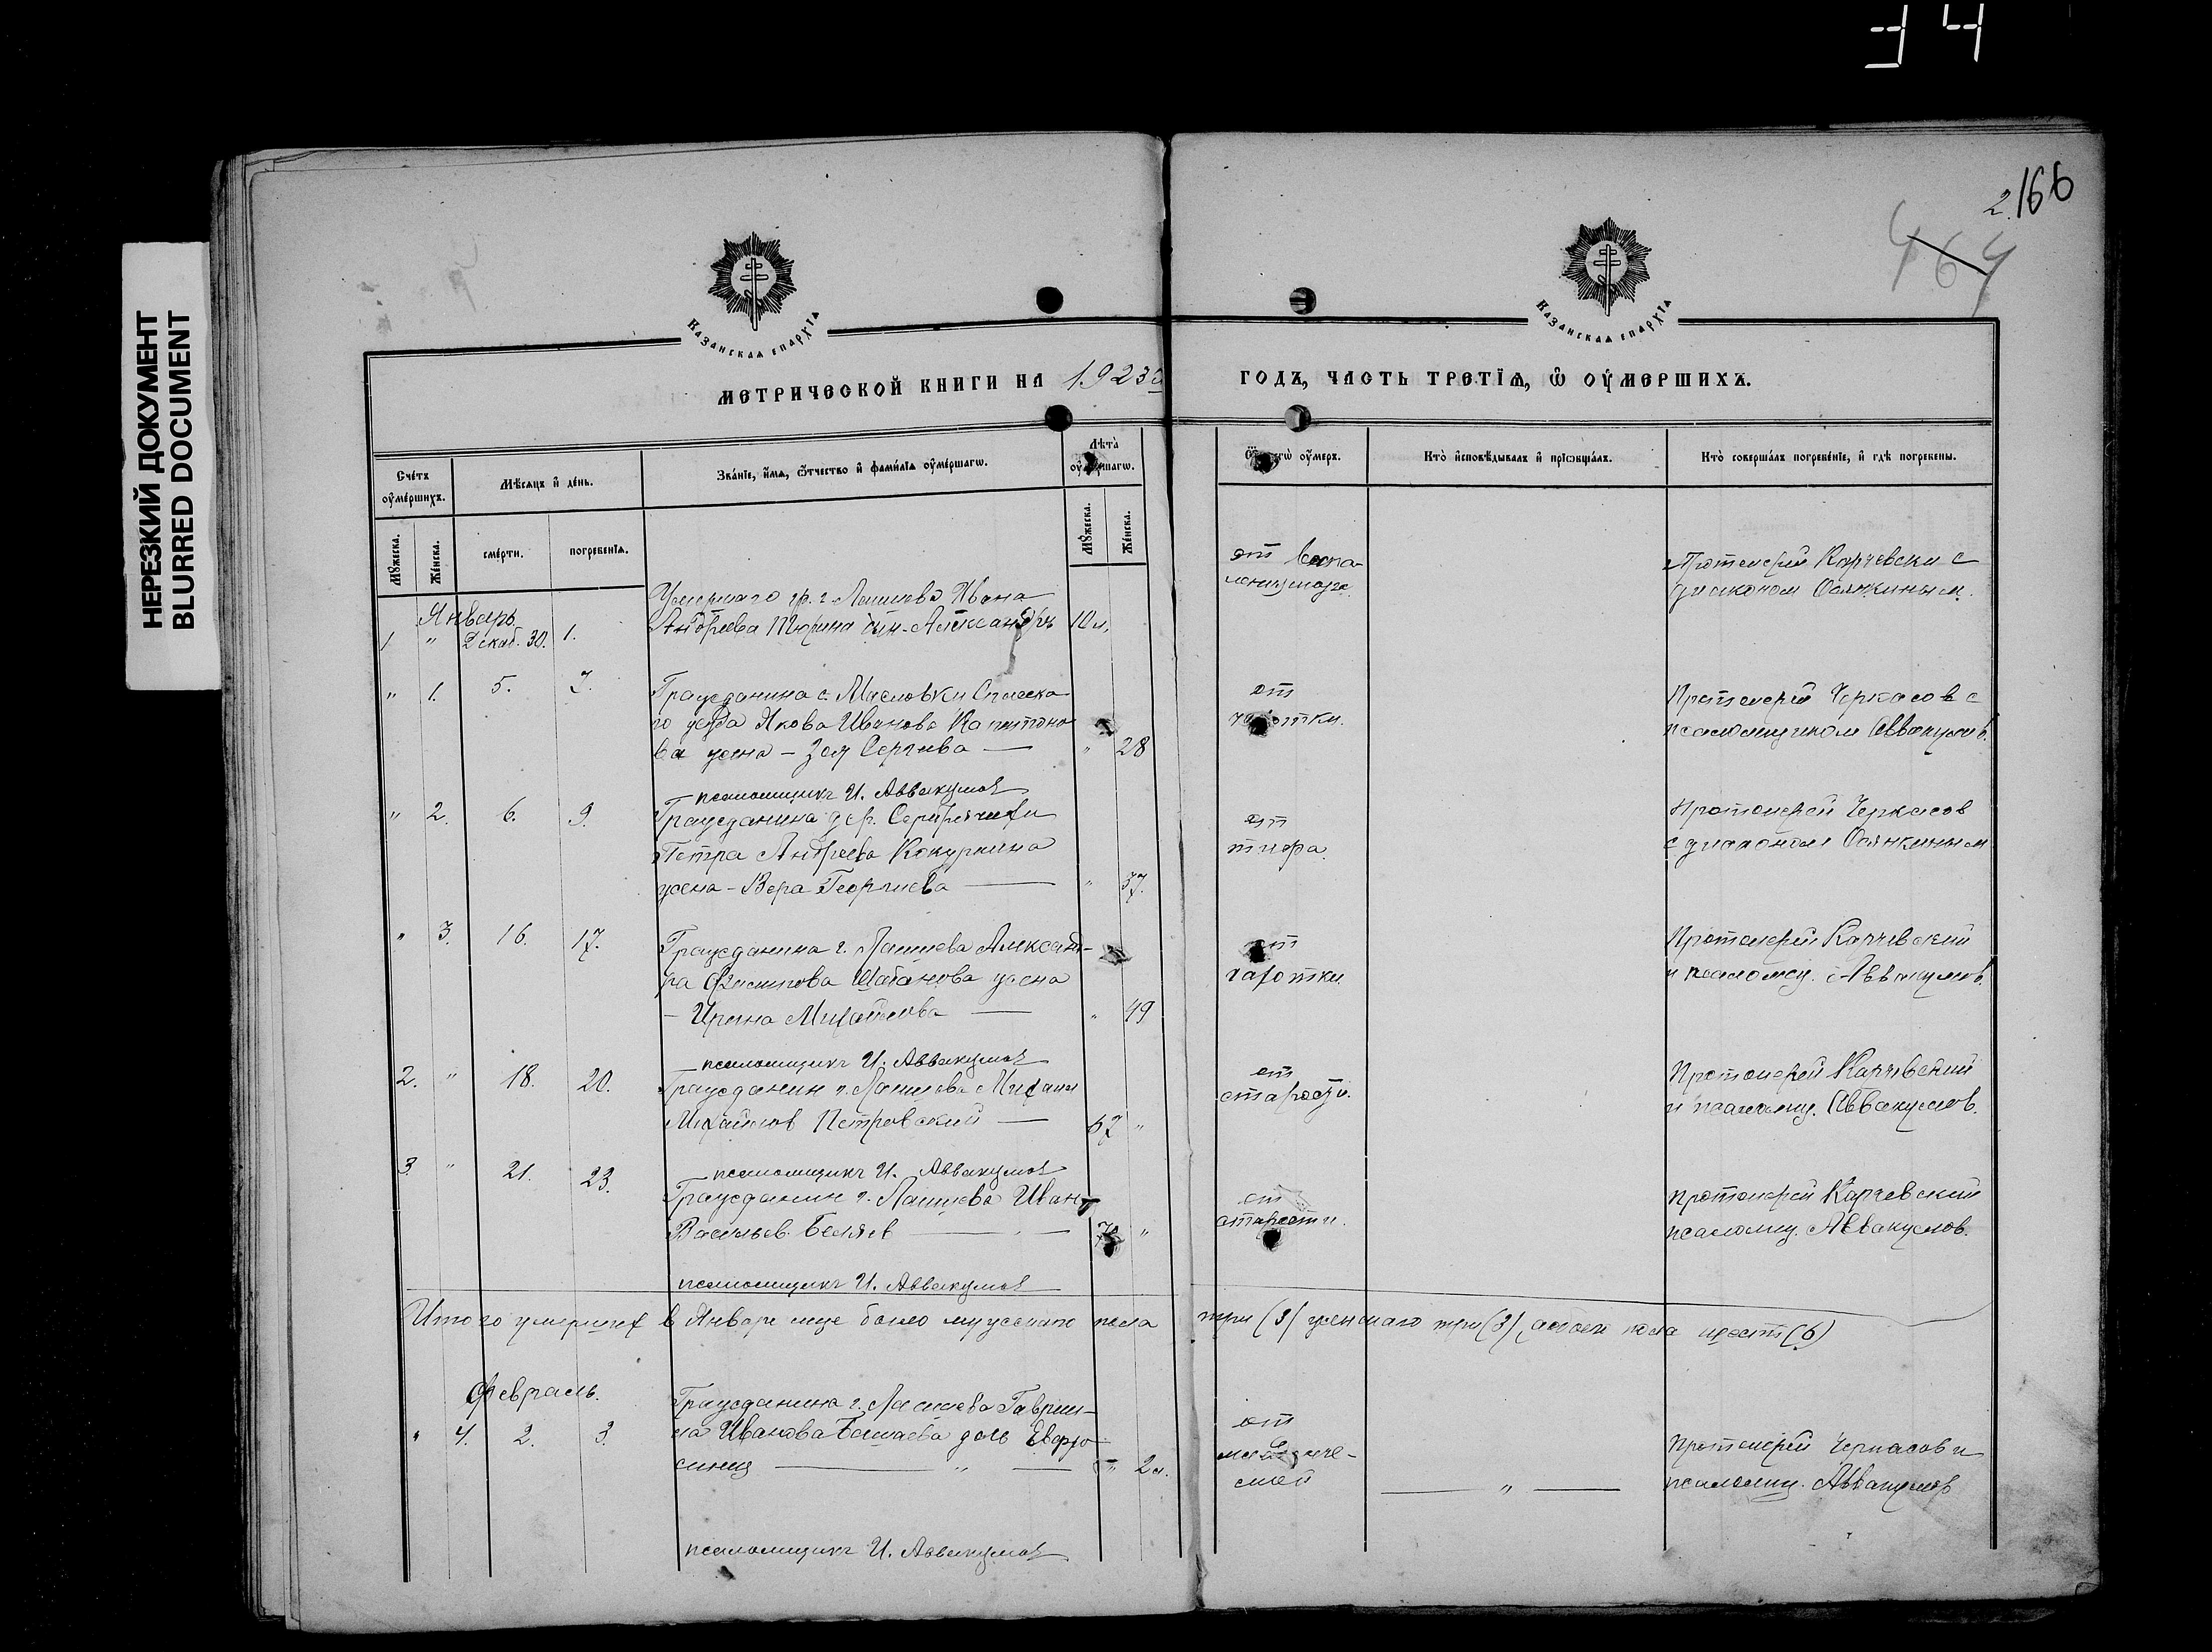 34
НЕРЕЗКИЙ ДОКУМЕНТ
BLURRED DOCUMENT
2. 166
464
КАЗАНСКАѦ ЕПАРХІѦ
КАЗАНСКАѦ ЕПАРХІѦ
МЕТРИЧЕСКОЙ КНИГИ НА 1923 ГОДЪ, ЧАСТЬ ТРЕТІѦ, Ѡ ОУМЕРШИХЪ.
Счетъ оумершихъ.
Мѣсяцъ и день.
Званіе, имя, отчество и фамиліѧ оумершагѡ.
Лѣта оумершагѡ.
Отъ чегѡ оумеръ.
Кто исповѣдывалъ и пріѡбщалъ.
Кто совершалъ погребеніе, и гдѣ погребены.
Мꙋжеска.
Женска.
смерти.
погребеніѧ.
Мꙋжеска.
Женска.
Январь
1 " Декаб. 30. 1.
Умершаго гр. г. Лаишева Ивана
Андреева Тюрина сын - Александръ 10 л.
от Воспа-
Протоиерей Карчевски с
диаконом Оаянкиным.
" 1. 5. 7.
Гражданина с. Масловки Спасска
го уезда Якова Иванова Капитоно
ва жена - Зоя Сергеева — " 28
от
чахотки.
Протоиерей Черкасов с
псаломщиком Аввакумов.
псаломщикъ И. Аввакумов
" 2. 6. 9.
Гражданина дер. Серебрячихи
Петра Андреева Кокуркина
жена - Вера Георгиева — " 37.
от
тифа.
Протоиерей Черкасов
с диаконом Оаянкиным
" 3. 16. 17.
Гражданина г. Лаишева Александ-
ра Филипова Шабанова жена
- Ирина Михайлова — " 49
от
чахотки.
Протоиерей Карчевский
и псаломщ. Аввакумов.
псаломщикъ И. Аввакумов
2. " 18. 20.
Гражданин г. Лаишева Михаил
Михайлов Петровский — 67 "
от
старости.
Протоиерей Карчевский
и псаломщ. Аввакумов.
псаломщикъ И. Аввакумов
3. " 21. 23.
Гражданин г. Лаишева Иван
Васильев Беляев — "
от
старости.
протоиерей Карчевский
псаломщ. Аввакумов.
псаломщикъ И. Аввакумов
Итого умерших в Январе м-це было мужскаго пола три (3) женскаго три (3), обоего пола шесть (6)
Февраль.
" 4. 2. 3.
Гражданина г. Лаишева Гаврии-
ла Иванова Башаева дочь Евфро
синия — " — " 2 л.
от
— " —
Протоиерей Черкасов и
псаломщ. Аввакумов
псаломщикъ И. Аввакумов